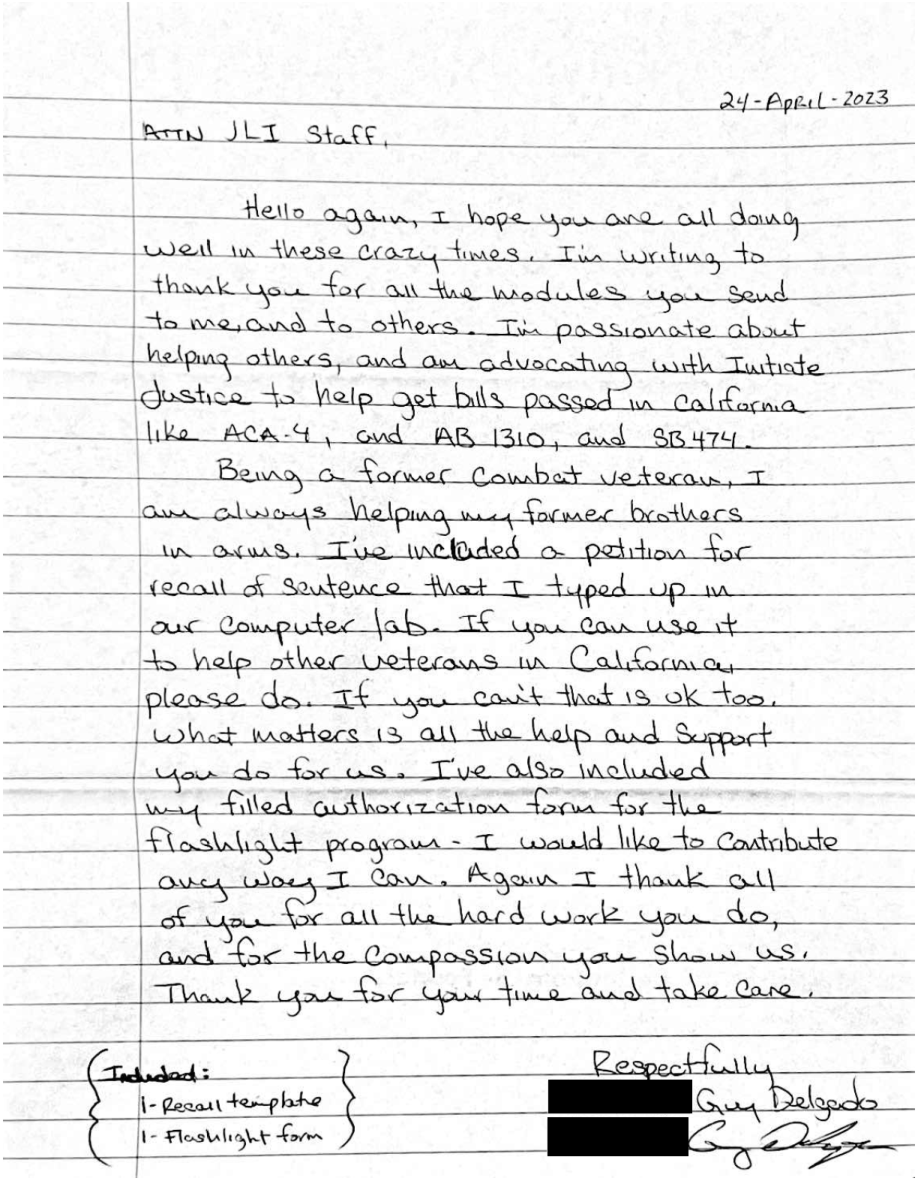 24-APRIL-2023
ATTN JLI Staff,
Hello again, I hope you are all doing
well in these crazy times. I'm writing to
thank you for all the modules you send
to me, and to others. I'm passionate about
helping others, and am advocating with Initiate
Justice to help get bills passed in California
like ACA-4, and AB 1310, and SB 474.
Being a former Combat veteran, I
am always helping my former brothers
in arms. I've included a petition for
recall of sentence that I typed up in
our computer lab. If you can use it
to help other veterans in California,
please do. If you can't that is ok too.
What matters is all the help and Support
you do for us. I've also included
my filled authorization form for the
flashlight program - I would like to Contribute
any way I can. Again I thank all
of you for all the hard work you do,
and for the Compassion you show us.
Thank you for your time and take care.
Included:
1- Recall template
1- Flashlight form
Respectfully
Guy Delgado